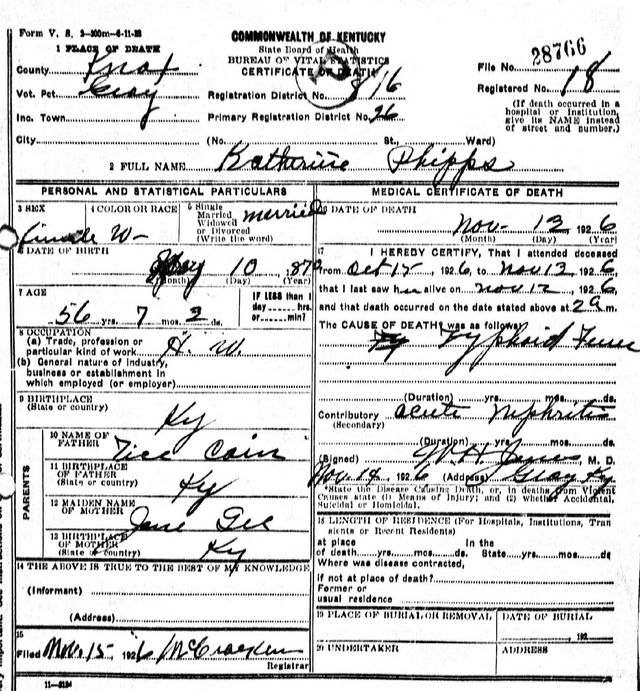 Form V. S. 2-300m-6-11-25
COMMONWEALTH OF KENTUCKY
State Board of Health
BUREAU OF VITAL STATISTICS
CERTIFICATE OF DEATH
28766
File No.
1 PLACE OF DEATH
County Knox
Vot. Pct. Gray
Registration District No. 816
Registered No. 18
Inc. Town
Primary Registration District No. 26
(If death occurred in a hospital or institution, give its NAME instead of street and number.)
City (No. St., Ward)
2 FULL NAME Katherine Phipps
PERSONAL AND STATISTICAL PARTICULARS
3 SEX
4 COLOR OR RACE
5 Single Married Widowed or Divorced (Write the word)
Female W- married
6 DATE OF BIRTH
10, 1870
(Month) (Day) (Year)
7 AGE
56 yrs. 7 mos. 2 ds.
IF LESS than 1 day hrs. or min?
8 OCCUPATION
(a) Trade, profession or particular kind of work H. W.
(b) General nature of industry, business or establishment in which employed (or employer)
9 BIRTHPLACE
(State or country) Ky
PARENTS
10 NAME OF FATHER Cain
11 BIRTHPLACE OF FATHER
(State or country) Ky
12 MAIDEN NAME OF MOTHER Jane Gee
13 BIRTHPLACE OF MOTHER
(State or country) Ky
14 THE ABOVE IS TRUE TO THE BEST OF MY KNOWLEDGE
(Informant)
(Address)
15
Filed Nov. 15, 1926 McCracken
Registrar
11-3184
MEDICAL CERTIFICATE OF DEATH
16 DATE OF DEATH
Nov- 12 1926
(Month) (Day) (Year)
17 I HEREBY CERTIFY, That I attended deceased
from Oct 15, 1926, to Nov 12 1926,
that I last saw her alive on Nov 12, 1926,
and that death occurred on the date stated above at 2 a m.
The CAUSE OF DEATH was as follows:
Typhoid Fever
(Duration) yrs. mos. ds.
Contributory Acute Nephritis
(Secondary)
(Duration) yrs. mos. ds.
(Signed) Jones, M. D.
Nov. 14 1926 (Address) Gray Ky
*State the Disease Causing Death, or, in deaths from Violent Causes state (1) Means of Injury; and (2) whether Accidental, Suicidal or Homicidal.
18 LENGTH OF RESIDENCE (For Hospitals, Institutions, Transients or Recent Residents)
at place In the
of death yrs. mos. ds. State yrs. mos. ds.
Where was disease contracted,
if not at place of death?
Former or
usual residence
19 PLACE OF BURIAL OR REMOVAL
DATE OF BURIAL
192
20 UNDERTAKER
ADDRESS